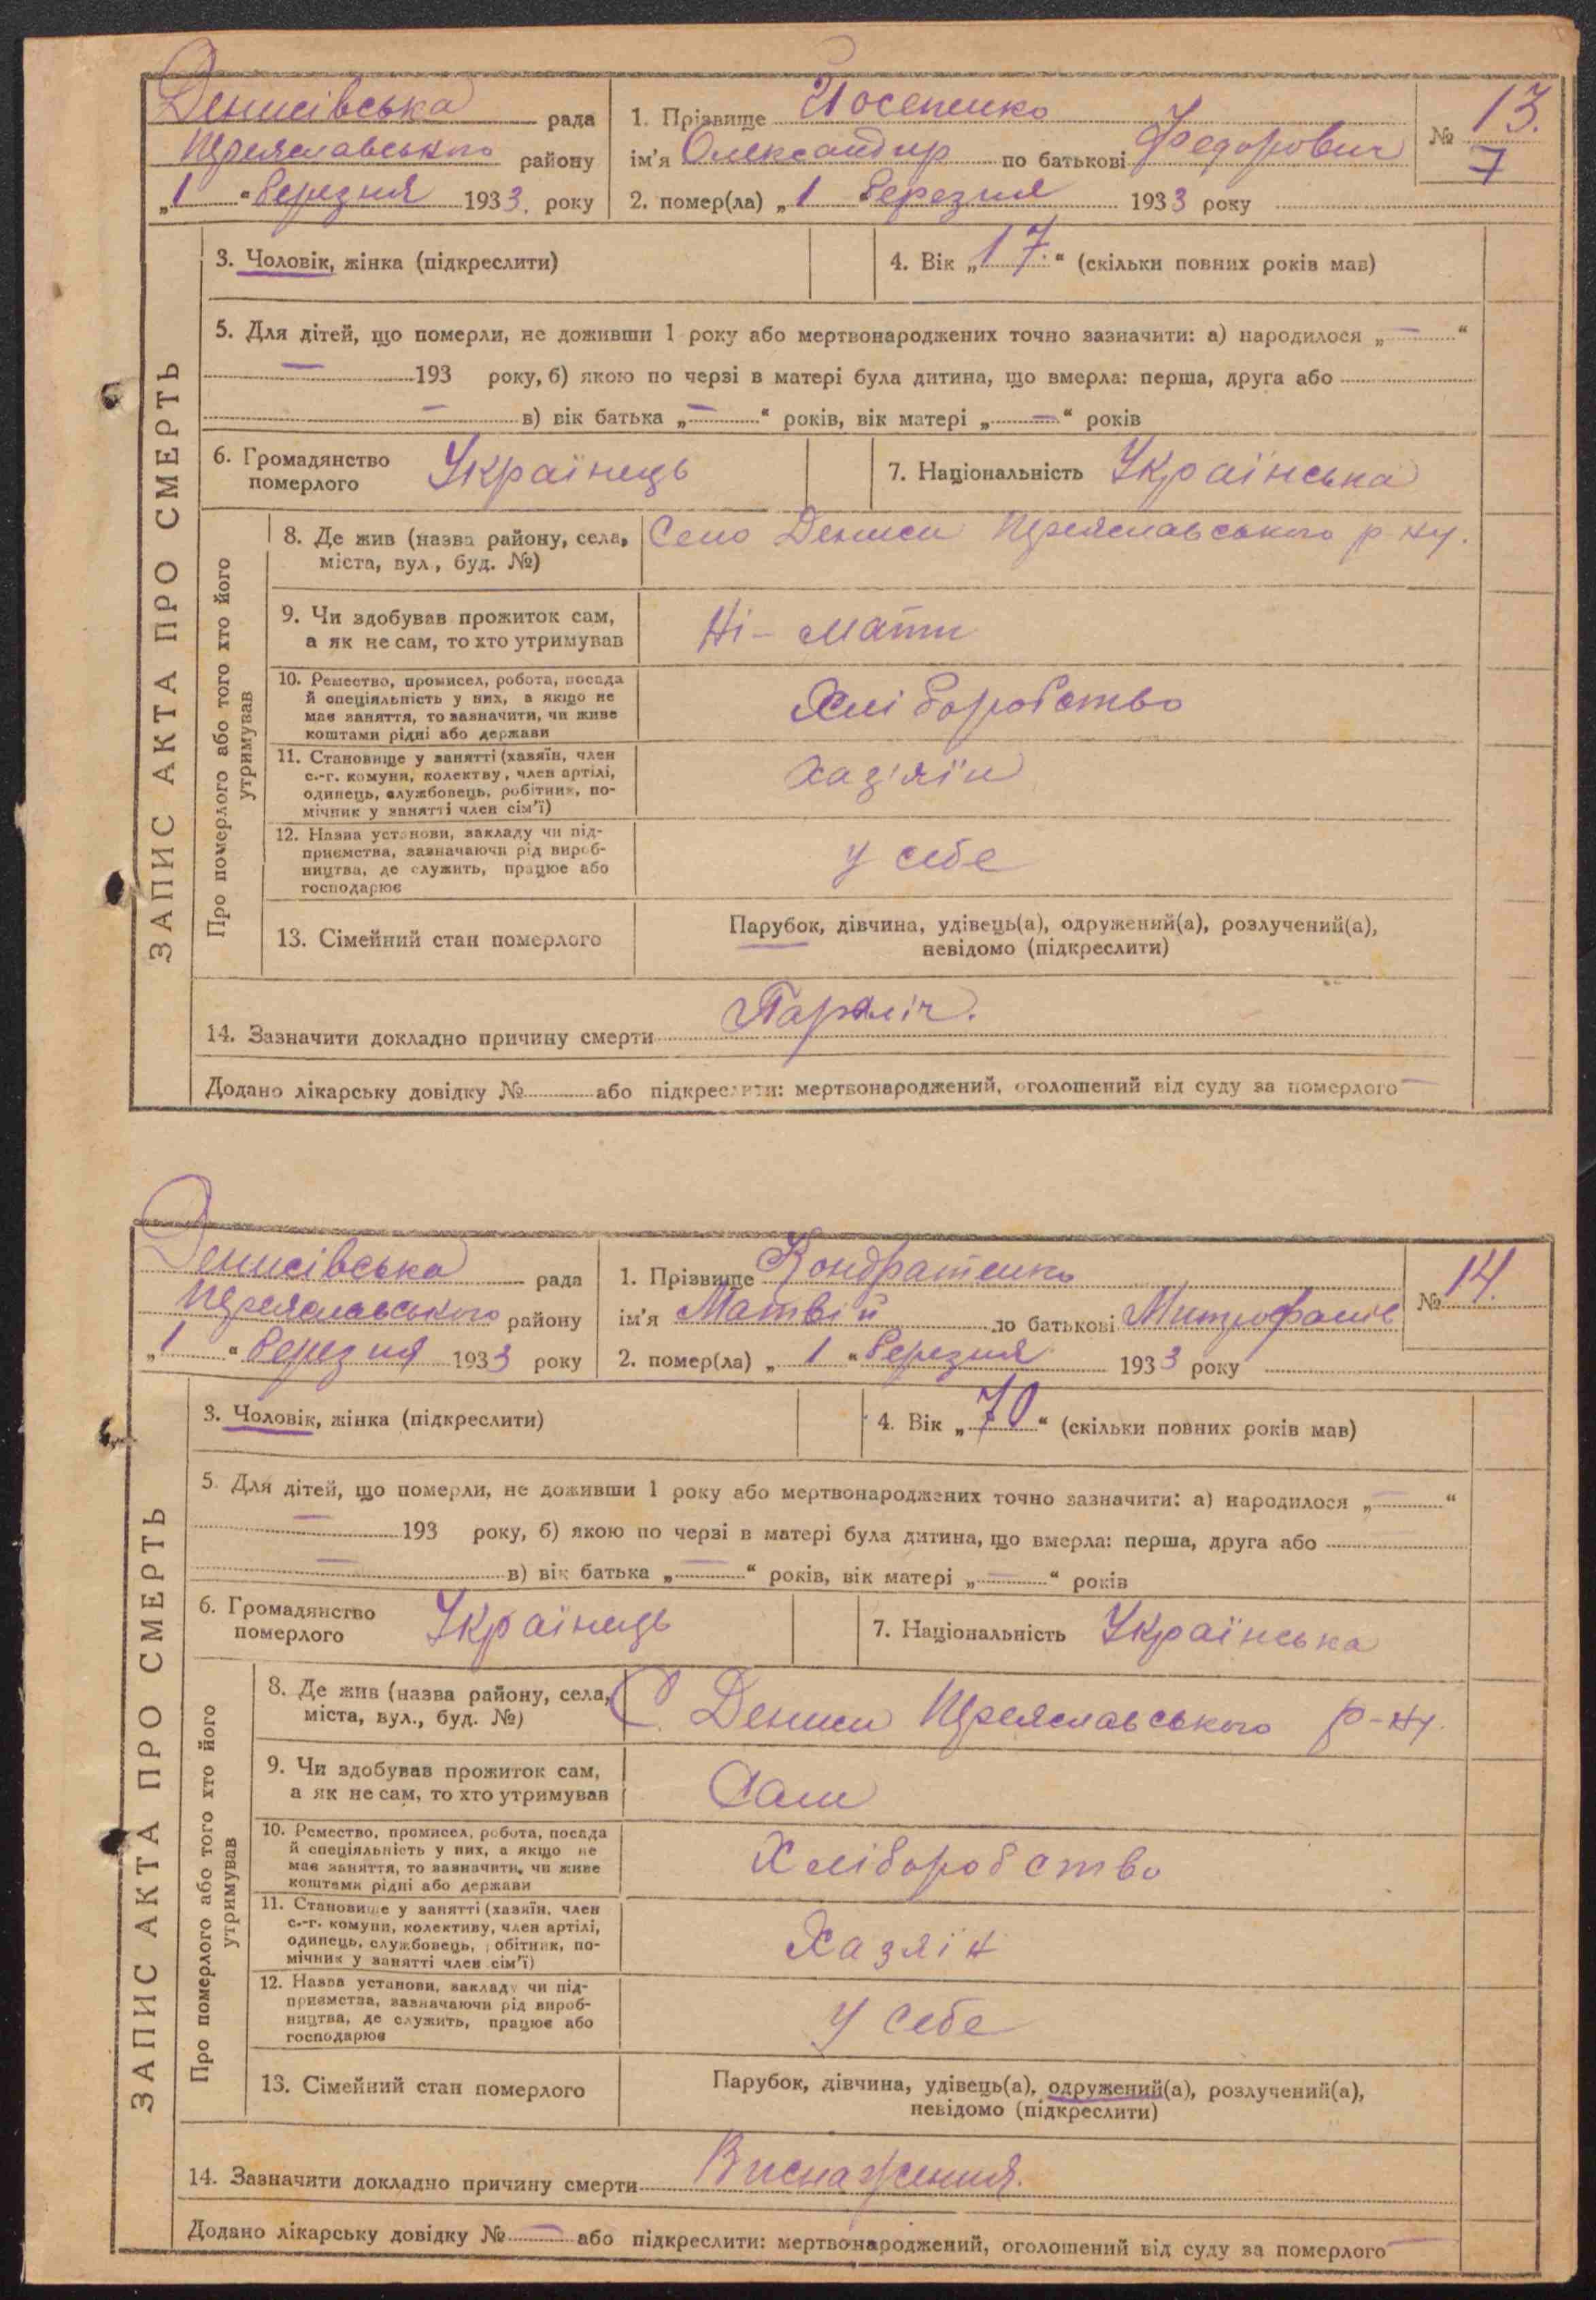 Денисівська рада
Переяславського району
„1“ березня 1933. року
1. Прізвище Йосепенко
ім'я Олександир по батькові Федорович
2. помер(ла) „1 березня 1933 року
№ 13.
7
ЗАПИС АКТА ПРО СМЕРТЬ
3. Чоловік, жінка (підкреслити)
4. Вік „17.“ (скільки повних років мав)
5. Для дітей, що померли, не доживши 1 року або мертвонароджених точно зазначити: а) народилося „—“
— 193 року, б) якою по черзі в матері була дитина, що вмерла: перша, друга або
— в) вік батька „—“ років, вік матері „—“ років
6. Громадянство
померлого
Українець
7. Національність Українська
Про померлого або того хто його
утримував
8. Де жив (назва району, села,
міста, вул., буд. №)
Село Дениси Переяславського р-ну.
9. Чи здобував прожиток сам,
а як не сам, то хто утримував
Ні – мати
10. Ремество, промисел, робота, посада
й спеціяльність у них, а якщо не
має заняття, то зазначити, чи живе
коштами рідні або держави
Хліборобство
11. Становище у занятті (хазяїн, член
с.-г. комуни, колектву, член артілі,
одинець, службовець, робітник, по-
мічник у занятті член сім'ї)
Хаз'яїн
12. Назва установи, закладу чи під-
приємства, зазначаючи рід вироб-
ництва, де служить, працює або
господарює
У себе
13. Сімейний стан померлого
Парубок, дівчина, удівець(а), одружений(а), розлучений(а),
невідомо (підкреслити)
14. Зазначити докладно причину смерти Параліч.
Додано лікарську довідку № або підкреслити: мертвонароджений, оголошений від суду за померлого —
Денисівська рада
Переяславського району
„1“ березня 1933 року
1. Прізвище Кондратенко
ім'я Матвій по батькові Митрофанів
2. помер(ла) „1“ березня 1933 року
№ 14.
ЗАПИС АКТА ПРО СМЕРТЬ
3. Чоловік, жінка (підкреслити)
4. Вік „70“ (скільки повних років мав)
5. Для дітей, що померли, не доживши 1 року або мертвонароджених точно зазначити: а) народилося „—“
— 193 року, б) якою по черзі в матері була дитина, що вмерла: перша, друга або
— в) вік батька „—“ років, вік матері „—“ років
6. Громадянство
померлого
Українець
7. Національність Українська
Про померлого або того хто його
утримував
8. Де жив (назва району, села,
міста, вул., буд. №)
С. Дениси Переяславського р-ну.
9. Чи здобував прожиток сам,
а як не сам, то хто утримував
Сам
10. Ремество, промисел, робота, посада
й спеціяльність у них, а якщо не
має заняття, то зазначити, чи живе
коштами рідні або держави
Хліборобство
11. Становище у занятті (хазяїн, член
с.-г. комуни, колективу, член артілі,
одинець, службовець, робітник, по-
мічник у занятті член сім'ї)
Хазяїн
12. Назва установи, закладу чи під-
приємства, зазначаючи рід вироб-
ництва, де служить, працює або
господарює
У себе
13. Сімейний стан померлого
Парубок, дівчина, удівець(а), одружений(а), розлучений(а),
невідомо (підкреслити)
14. Зазначити докладно причину смерти Виснаження.
Додано лікарську довідку № — або підкреслити: мертвонароджений, оголошений від суду за померлого —